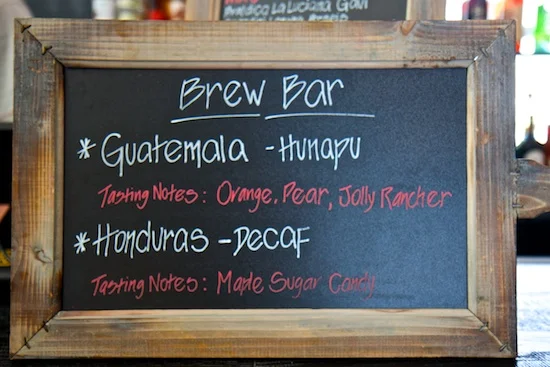 Brew Bar
* Guatemala - Hunapu
Tasting Notes: Orange, Pear, Jolly Rancher
* Honduras - Decaf
Tasting Notes: Maple Sugar Candy